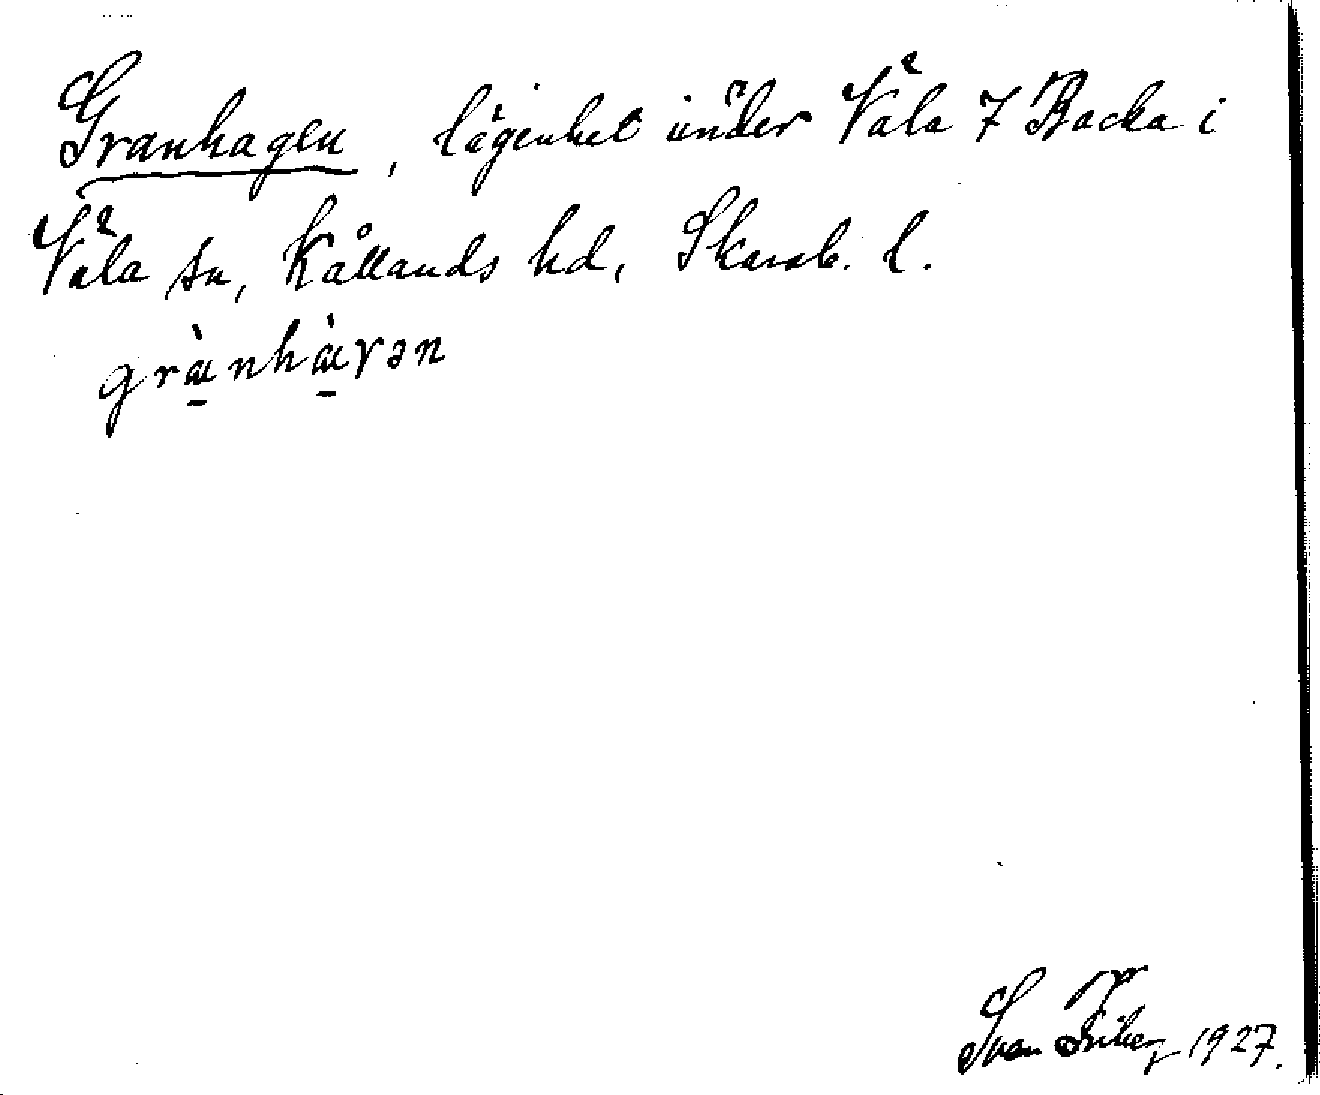 Granhagen, lägenhet under Våla 7 Backa i
Våla sn, Kållands hd, Skarab. l.
grànhàɣən
Sven Friberg 1927.